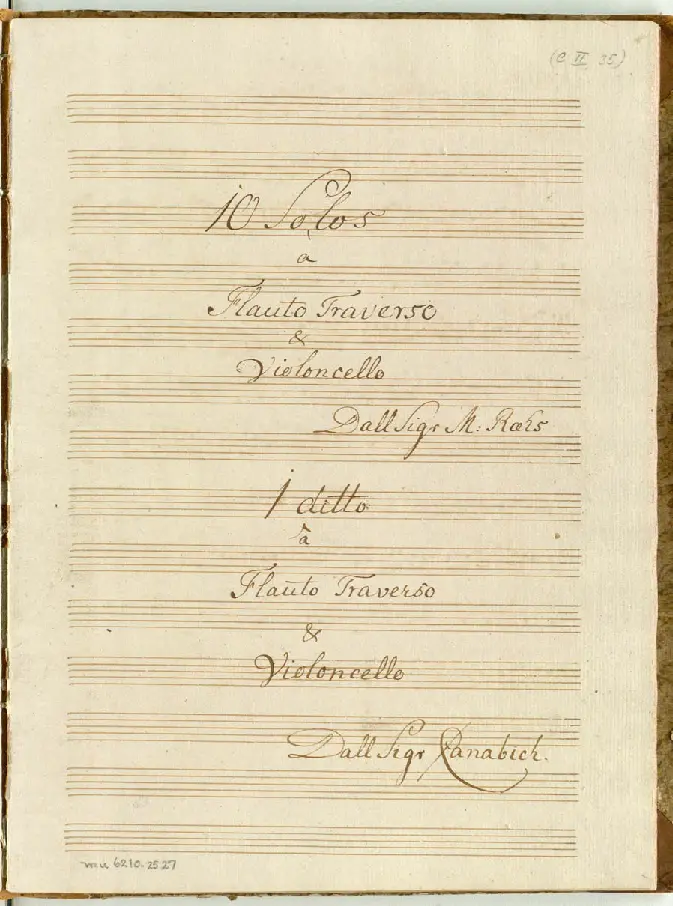 (C II 35)
10 Solos
a
Flauto Traverso
&
Violoncello
Dall Sigr M: Ræhs
1 ditto
a
Flauto Traverso
&
Violoncello
Dall Sigr Canabich.
mu 6210.2527